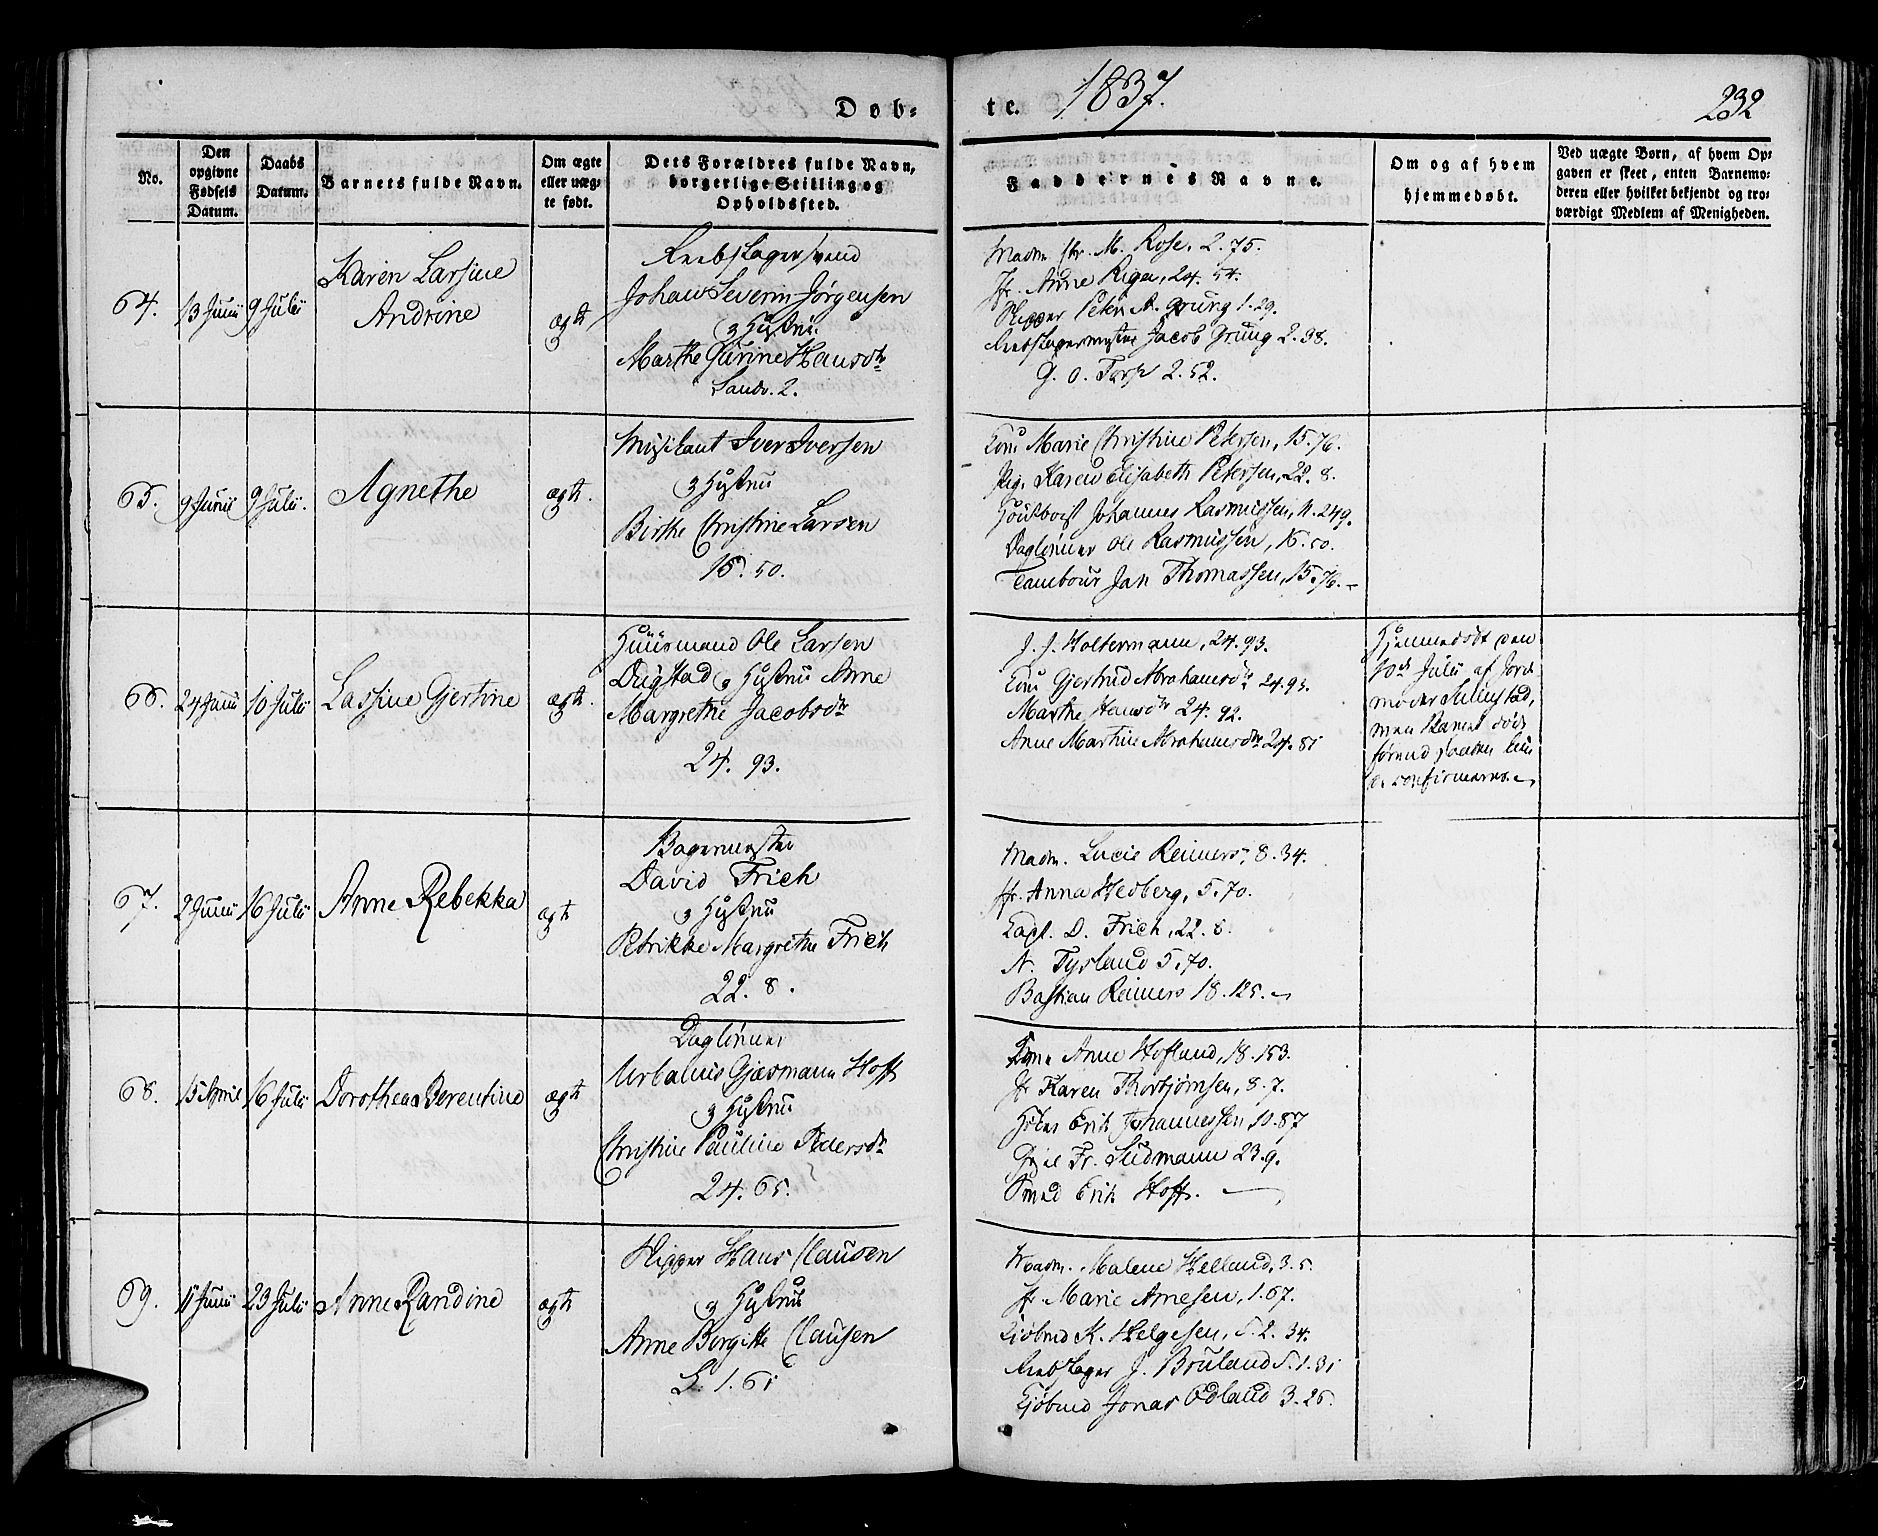 Døb=
te. 1837.
232
No.
Den opgivne Fødsels Datum.
Daabs Datum.
Barnets fulde Navn.
Om ægte eller uæg- te født.
Dets Forældres fulde Navn, borgerlige Stilling og Opholdssted.
Faddernes Navne.
Om og af hvem hjemmedøbt.
Ved uægte Børn, af hvem Op- gaven er skeet, enten Barnemo- deren eller hvilket bekjendt og tro- værdigt Medlem af Menigheden.
64.
13 Junii
9 Julii
Karen Larsine
Andrine
ægte
Johan Severin Jørgensen
og Hustru
Marthe Gurine Hansdtr
Sandv. 2.
M. Rose, 2. 75.
Jfr. Anne Riga, 24. 54.
Skipper Peter A. Grung 1. 29.
Jacob Grung 2. 38.
G. O. Torp 2. 52.
65.
9 Junii
9 Julii.
Agnethe
ægte.
Musikant Iver Iversen
og Hustru
Birthe Christine Larsen
15. 50.
Kone Marie Christine Petersen, 15. 76.
Pig. Karen Elisabeth Petersen, 22. 8.
Johannes Rasmussen, 11. 249.
Dagleiner Ole Rasmussen, 15. 50.
Tambour Jan Thomassen, 15. 76.
66.
24 Junii
10 Julii
Lassine Gjertine
ægte.
Huusmand Ole Larsen
Dugstad og Hustru Anne
Margrethe Jacobsdtr
24. 93.
J. J. Holtermann, 24. 93.
Kone Gjertrud Abrahamsdtr 24. 93.
Marthe Hansdtr 24. 92.
Anne Martine Abrahamsdtr 24. 81
Hjemmedøbt den
10de Julii af Jord-
moder
men Barnet døde
førend Daaben kun-
de confirmeres.
67.
2 Junii
16 Julii
Anne Rebekka
ægte
Bagermester
David Frich
og Hustru
Petrikke Margrethe Frich
22. 8.
Madm. Lucie Reimers, 8. 34.
Jfr. Anna Hedberg, 5. 70.
D. Frich, 22. 8.
N. Tysland 5. 70.
Bastian Reimers 18. 125.
68.
15 April
16 Julii
Dorothea Berentine
ægte
Dagleiner
Urbanus Gjæsmann Hoff
og Hustru
Christine Pauline Pedersdtr
24. 65.
Kone Anne Hofland, 18. 153.
Jfr Karen Thorbjørnsen, 8. 7.
Erik Johannessen 11. 87
Fr. Sudmann 23. 9.
Smed Erik Hoff.
69.
11 Junii
23 Julii
Anne Randine
ægte
Skipper Hans Clausen
og Hustru
Anne Borgitte Clausen
S. 1. 61
Madm. Malene Helland, 3. 5.
Jfr. Marie Arnesen, 1. 67.
Kjøbmd K. Helgesen, S. 2. 34.
J. Bruland S. 1. 31
Kjøbmd Jonas Odland 3. 26.